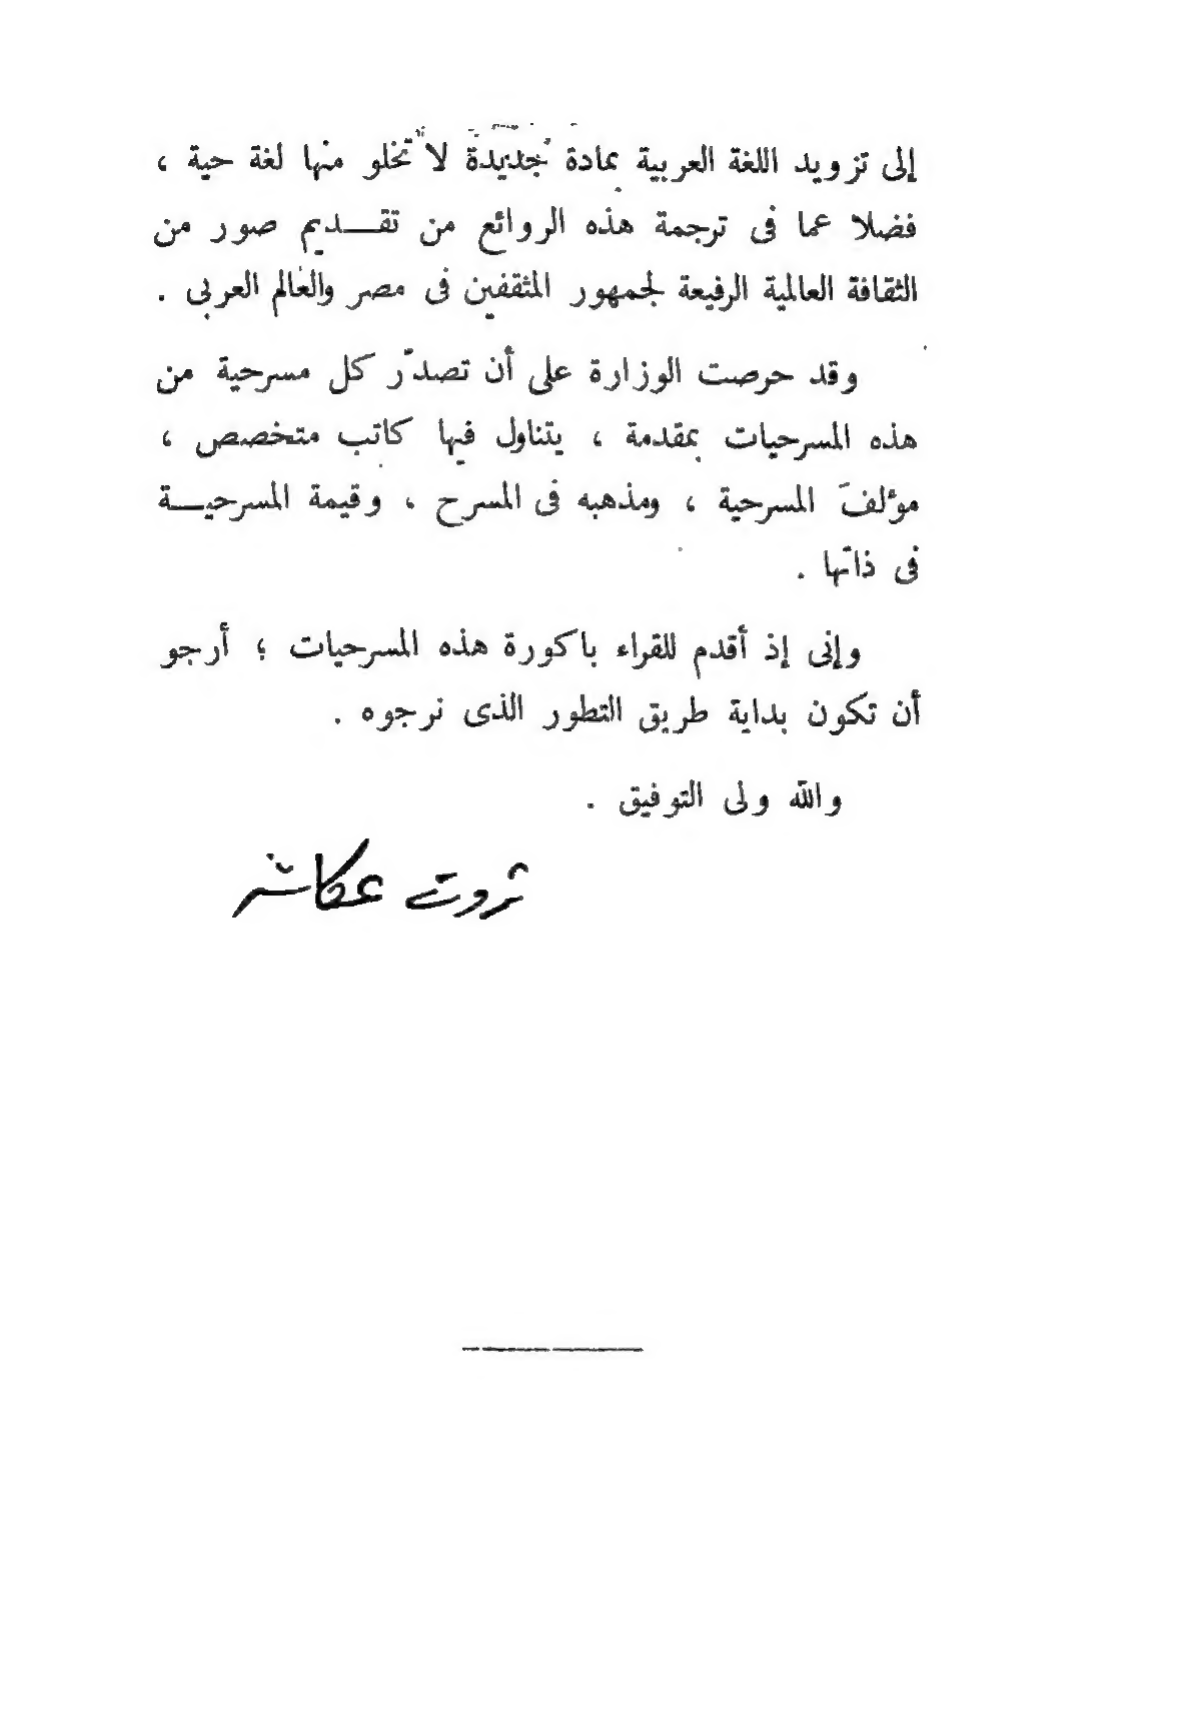 إلى تزويد اللغة العربية بمادة جديدة لا تخلو منها لغة حية ،
فضلا عما فى ترجمة هذه الروائع من تقـــديم صور من
الثقافة العالمية الرفيعة لجمهور المثقفين فى مصر والعالم العربى .
وقد حرصت الوزارة على أن تصدّر كل مسرحية من
هذه المسرحيات بمقدمة ، يتناول فيها كاتب متخصص ،
مؤلفَ المسرحية ، ومذهبه فى المسرح ، وقيمة المسرحيـــة
فى ذاتها .
وإنى إذ أقدم للقراء باكورة هذه المسرحيات ؛ أرجو
أن تكون بداية طريق التطور الذى نرجوه .
والله ولى التوفيق .
ثروت عكاشه